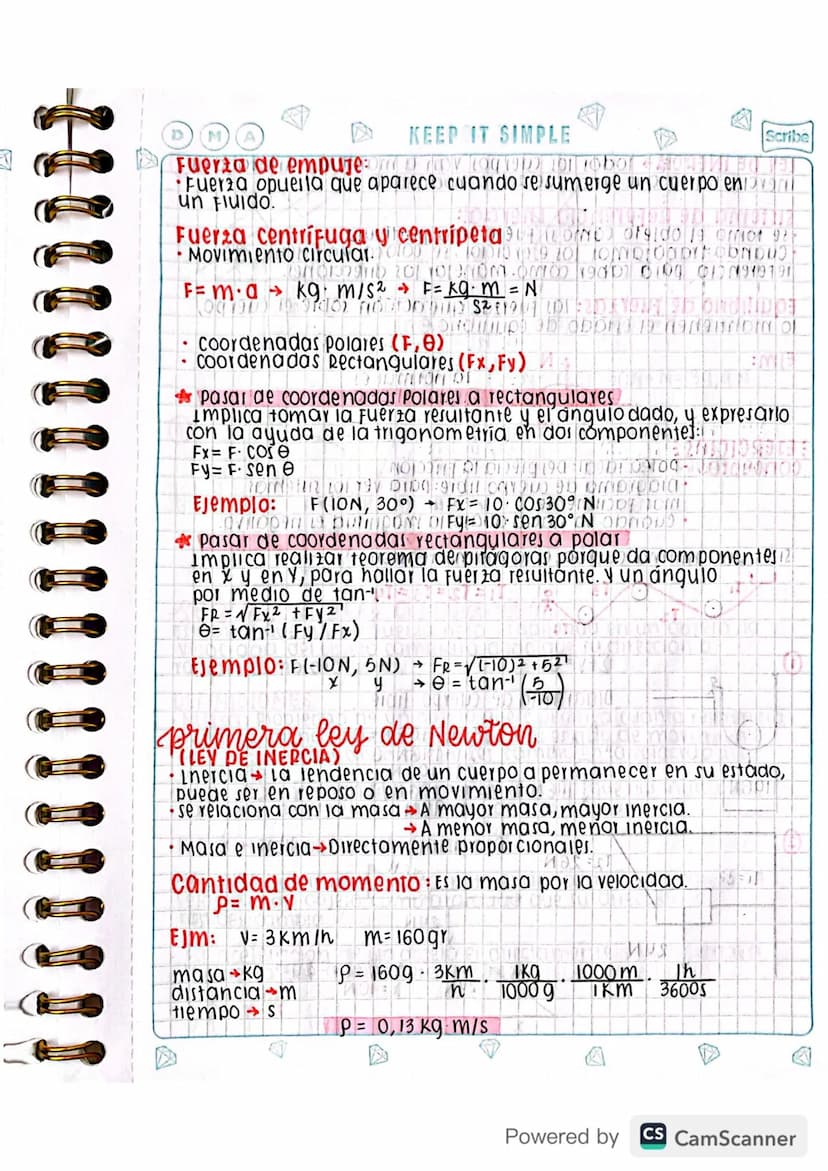 D M A
KEEP IT SIMPLE
Scribe
Fuerza de empuje:
· Fuerza opuesta que aparece cuando se sumerge un cuerpo en
un fluido.
Fuerza centrífuga y centrípeta
· Movimiento circular.
F= m·a → kg· m/s² → F= kg·m / s² = N
· coordenadas polares (F,θ)
· coordenadas Rectangulares (Fx,Fy)
★ Pasar de coordenadas Polares a rectangulares
Implica tomar la Fuerza resultante y el ángulo dado, y expresarlo
con la ayuda de la trigonometría en dos componentes:
Fx= F· cos θ
Fy= F· sen θ
Ejemplo: F(10N, 30°) → Fx= 10· cos30° N
Fy= 10· sen 30° N
★ Pasar de coordenadas rectangulares a polar
Implica realizar teorema de pitágoras porque da componentes
en x y en y, para hallar la fuerza resultante. y un ángulo
por medio de tan⁻¹.
FR = √Fx² + Fy²
θ= tan⁻¹ (Fy/Fx)
Ejemplo: F(-10N, 5N) → FR=√(-10)² + 5²
x y → θ = tan⁻¹ (5 / -10)
primera ley de Newton
(LEY DE INERCIA)
· Inercia → La tendencia de un cuerpo a permanecer en su estado,
puede ser en reposo o en movimiento.
· se relaciona con la masa → A mayor masa, mayor inercia.
→ A menor masa, menor inercia.
· Masa e inercia → Directamente proporcionales.
Cantidad de momento: Es la masa por la velocidad.
ρ= m·v
EJm: V= 3Km/h m= 160gr
masa → kg
distancia → m
tiempo → s
ρ = 160g · 3Km / h · 1Kg / 1000g · 1000m / 1Km · 1h / 3600s
ρ = 0,13 kg·m/s
Powered by CS CamScanner